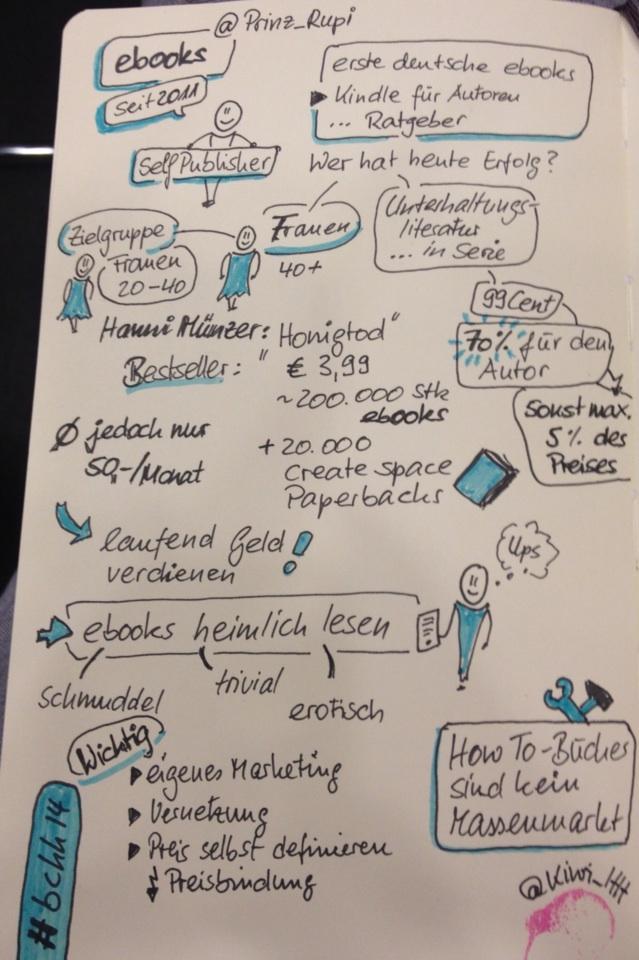 @Prinz_Rupi
ebooks
seit 2011
Self Publisher
erste deutsche ebooks
Kindle für Autoren
... Ratgeber
Wer hat heute Erfolg?
Zielgruppe
Frauen
20-40
Frauen
40+
Unterhaltungs-
literatur
... in Serie
99 Cent
70% für den
Autor
sonst max.
5% des
Preises
Hanni Münzer: Honigtod"
Bestseller: " € 3,99
~200.000 Stk
ebooks
+ 20.000
Create space
Paperbacks
Ø jedoch nur
50,-/Monat
laufend Geld!
verdienen
Ups
ebooks heimlich lesen
schmuddel
trivial
erotisch
Wichtig
eigenes Marketing
Vernetzung
Preis selbst definieren
Preisbindung
How To-Bücher
sind kein
Massenmarkt
@Kiwi_HH
#bchh14